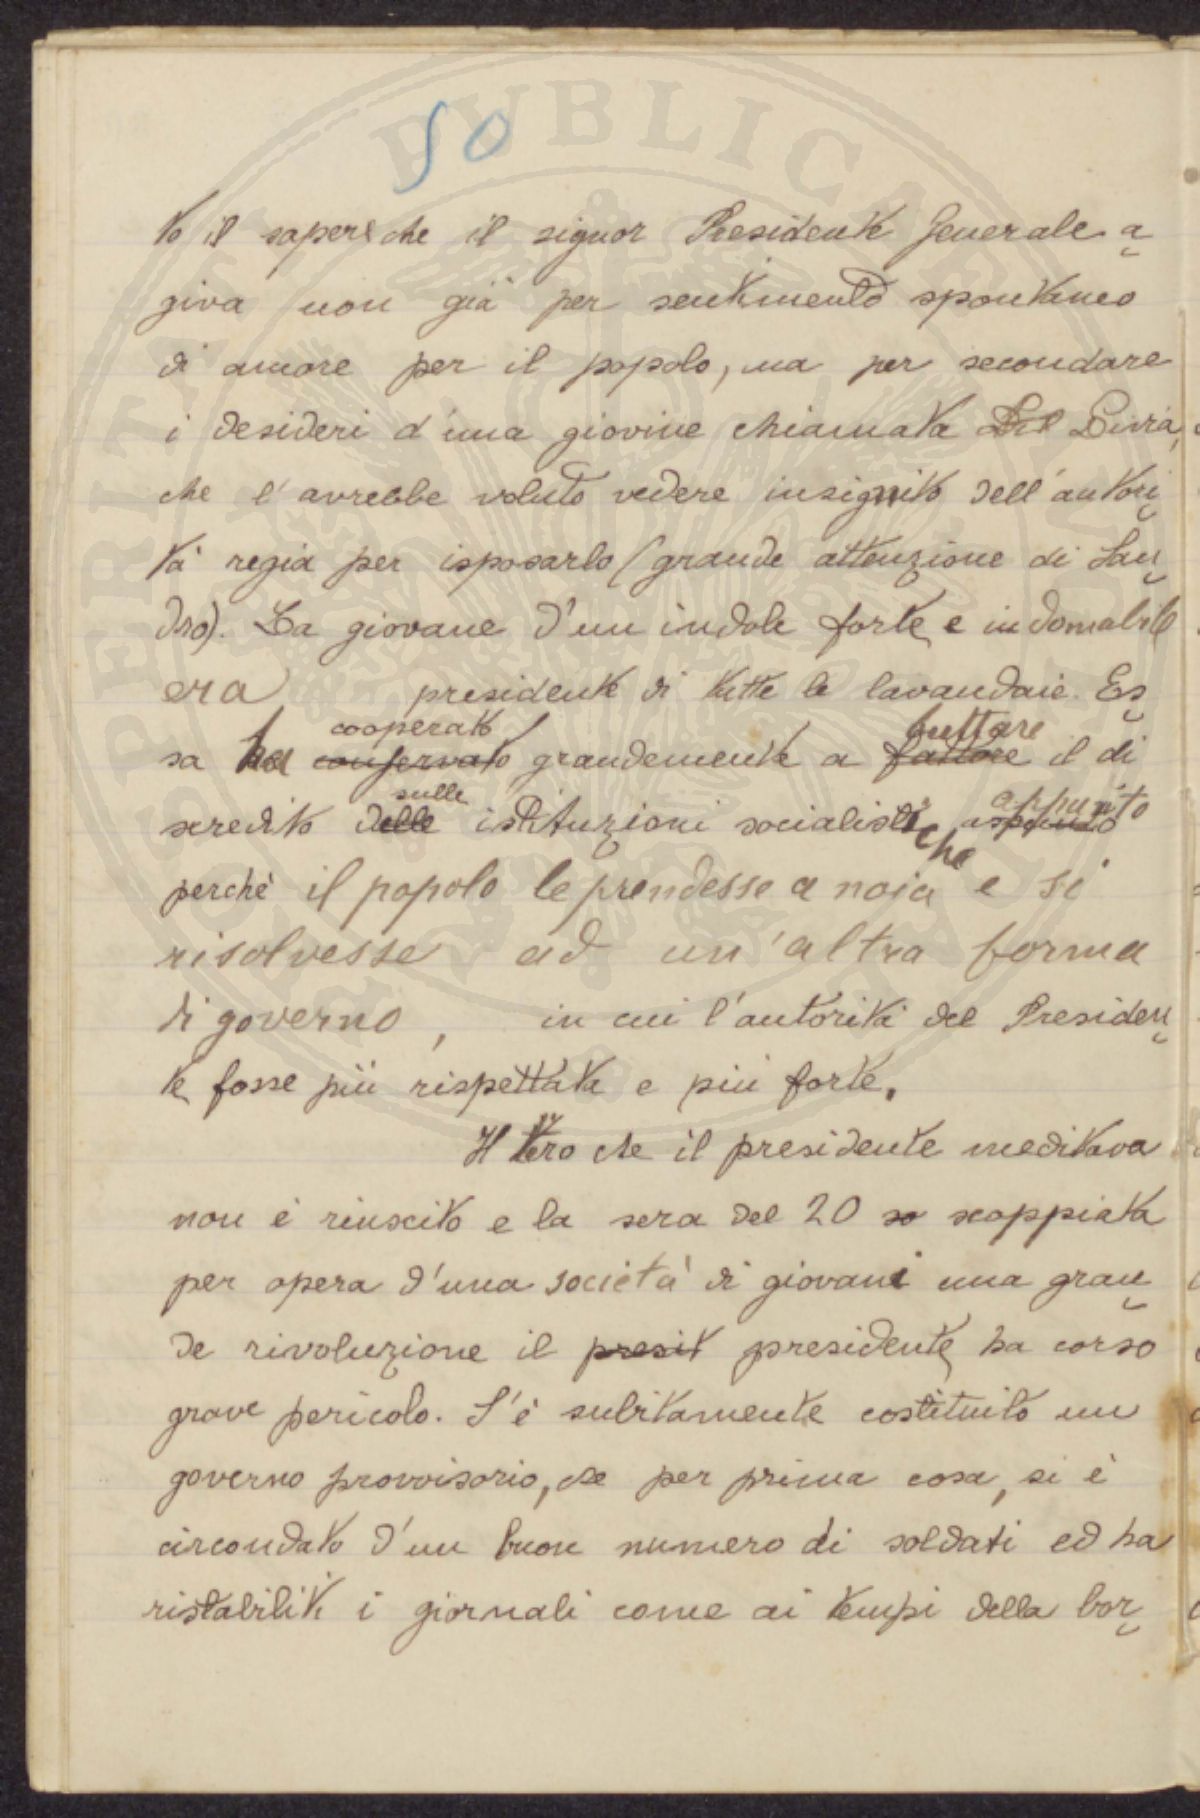 50
to il sapere che il signor Presidente Generale a
giva non già per sentimento spontaneo
di amore per il popolo, ma per secondare
i desideri d'una giovine chiamata Del
che l'avrebbe voluto vedere insignito dell'autori
tà regia per isposarlo (grande attenzione di San
dro). La giovane d'un indole forte e indomabile
era presidente di tutte le lavandaie. Es
cooperato buttare
sa ha grandemente a il di
sulle appunto
scredito delle istituzioni socialistiche
perchè il popolo le prendesse a noia e si
risolvesse ad un'altra forma
di governo, in cui l'autorità del Presiden
te fosse più rispettata e più forte.
Il vero che il presidente meditava
non è riuscito e la sera del 20 so scoppiata
per opera d'una società di giovani una gran
de rivoluzione il presit presidente ha corso
grave pericolo. S'è subitamente costituito un
governo provvisorio, che per prima cosa, si è
circondato d'un buon numero di soldati ed ha
ristabiliti i giornali come ai tempi della bor